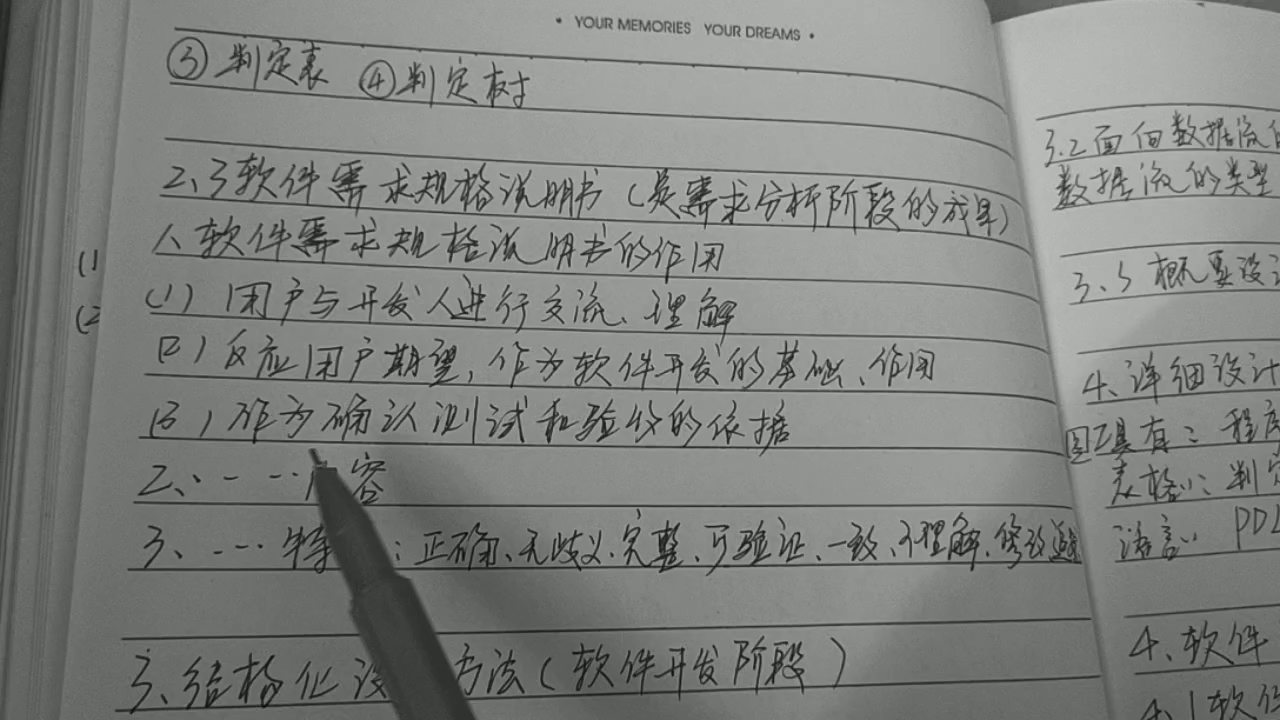 • YOUR MEMORIES YOUR DREAMS •
③判定表 ④判定树
2.3软件需求规格说明书(是需求分析阶段的成果)
1、软件需求规格说明书的作用
(1)用户与开发人进行交流、理解
(2)反应用户期望,作为软件开发的基础、作用
(3)作为确认测试和验收的依据
2、……容
3、…特:正确、无歧义、完整、可验证、一致、可理解、修改、追
3、结构化设方法(软件开发阶段)
(1
(2
3.2面向数据流
数据流的类型
3.3概要设
4、详细设计
图工具有:程序
表格..:判定
语言..PDL
4、软件
4.1软件